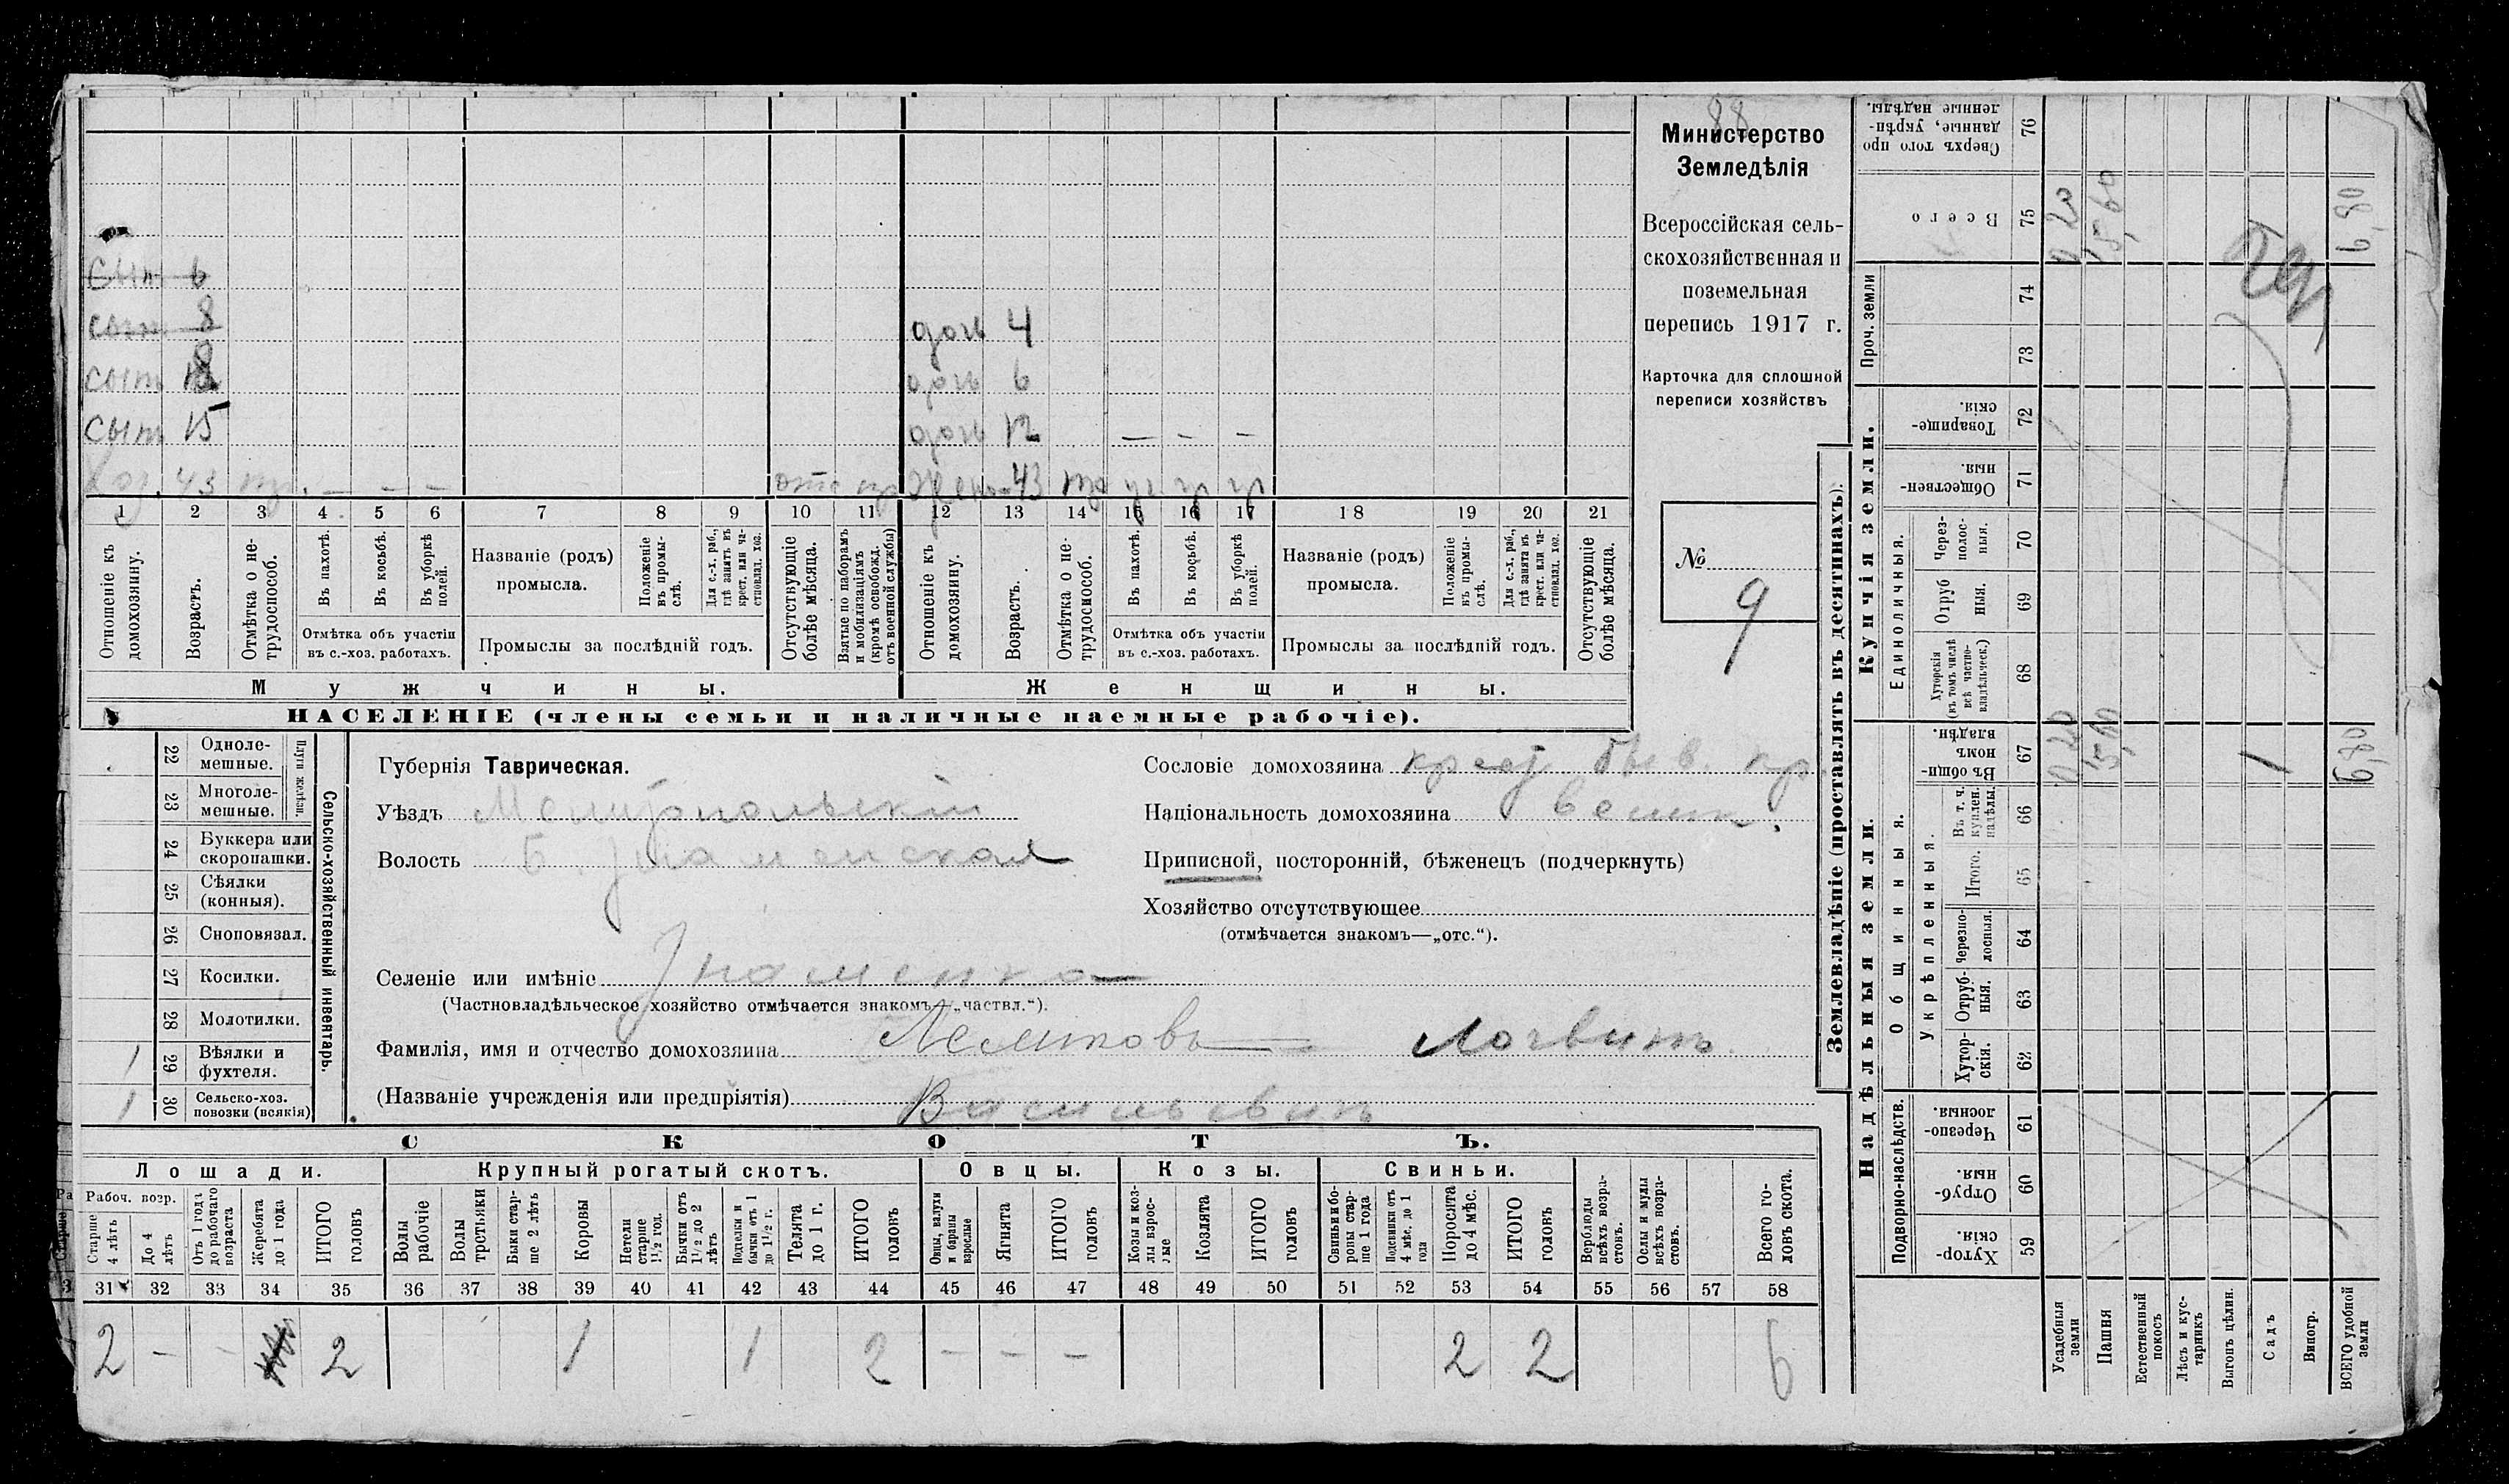 88
Министерство
Земледѣлія
Всероссійская сель-
скохозяйственная и
поземельная
перепись 1917 г.
Карточка для сплошной
переписи хозяйствъ
№
9
сын 6
сын 8
сынъ 8
сынъ 15
хоз. 43
дочь 4
дочь 6
дочь 12
жена 43
1 2 3 4 5 6 7 8 9 10 11 12 13 14 15 16 17 18 19 20 21
Отношеніе къ домохозяину.
Возрастъ.
Отмѣтка о не-трудоспособ.
Въ пахотѣ.
Въ косьбѣ.
Въ уборкѣ полей.
Отмѣтка объ участіи
въ с.-хоз. работахъ.
Названіе (родъ)
промысла.
Положеніе въ промы-слѣ.
Для с.-х. раб., гдѣ занятъ въ крест. или ча-стновлад. хоз.
Промыслы за послѣдній годъ.
Отсутствующіе болѣе мѣсяца.
Взятые по наборамъ и мобилизаціямъ (кромѣ освобожд. отъ военной службы)
Отношеніе къ домохозяину.
Возрастъ.
Отмѣтка о не-трудоспособ.
Въ пахотѣ.
Въ косьбѣ.
Въ уборкѣ полей.
Отмѣтка объ участіи
въ с.-хоз. работахъ.
Названіе (родъ)
промысла.
Положеніе въ промы-слѣ.
Для с.-х. раб., гдѣ занятъ въ крест. или ча-стновлад. хоз.
Промыслы за послѣдній годъ.
Отсутствующіе болѣе мѣсяца.
Мужчины.
Женщины.
НАСЕЛЕНІЕ (члены семьи и наличные наемные рабочіе).
Сельско-хозяйственный инвентарь.
Плуги желѣзн.
22 Одноле-мешные.
23 Многоле-мешные.
24 Буккера или скоропашки.
25 Сѣялки (конныя).
26 Сноповязал.
27 Косилки.
28 Молотилки.
1 29 Вѣялки и фухтеля.
1 30 Сельско-хоз. повозки (всякія)
Губернія Таврическая.
Уѣздъ Мелитопольскій
Волость Б. Знаменская
Сословіе домохозяина крест. быв.
Національность домохозяина
Приписной, посторонній, бѣженецъ (подчеркнуть)
Хозяйство отсутствующее
(отмѣчается знакомъ—„отс.“).
Селеніе или имѣніе Знаменка
(Частновладѣльческое хозяйство отмѣчается знакомъ—„частвл.“).
Фамилія, имя и отчество домохозяина Логвинъ
(Названіе учрежденія или предпріятія) Васильевичъ
СКОТЪ.
Лошади.
Крупный рогатый скотъ.
Овцы.
Козы.
Свиньи.
Рабоч. возр.
Старше 4 лѣтъ
До 4 лѣтъ
Отъ 1 года до рабочаго возраста
Жеребята до 1 года
ИТОГО головъ
Волы рабочіе
Волы третьяки
Быки стар-ше 2 лѣтъ
Коровы
Нетели старше 1½ год.
Бычки отъ 1½ до 2 лѣтъ
Подтелки и бычки отъ 1 до 1½ г.
Телята до 1 г.
ИТОГО головъ
Овцы, валухи и бараны взрослые
Ягнята
ИТОГО головъ
Козы и коз-лы взрос-лые
Козлята
ИТОГО головъ
Свиньи и бо-ровы стар-ше 1 года
Подсвинки отъ 4 мѣс. до 1 года
Поросята до 4 мѣс.
ИТОГО головъ
Верблюды всѣхъ возра-стовъ.
Ослы и мулы всѣхъ возра-стовъ.
Всего го-ловъ скота.
31 32 33 34 35 36 37 38 39 40 41 42 43 44 45 46 47 48 49 50 51 52 53 54 55 56 57 58
2 — — 2 1 1 2 — — — 2 2 6
Землевладѣніе (проставлять въ десятинахъ).
Купчія земли.
Надѣльныя земли.
Проч. земли
Единоличныя.
Общинныя.
Укрѣпленныя.
Подворно-наслѣдств.
76 Сверхъ того про-данные, укрѣп-ленные надѣлы.
75 Всего
74
73
72 Товарище-скія.
71 Обществен-ныя.
70 Через-полос-ныя.
69 Отруб-ныя.
68 Хуторскія (въ томъ числѣ всѣ частно-владѣльческ.)
67 Въ общин-номъ владѣн.
66 Въ т. ч. куплен. надѣлы.
65 Итого.
64 Черезпо-лосныя.
63 Отруб-ныя.
62 Хутор-скія.
61 Черезпо-лосныя.
60 Отруб-ныя.
59 Хутор-скія.
Усадебныя земли
Пашня
Естественный покосъ
Лѣсъ и кус-тарникъ
Выгонъ цѣлин.
Садъ
Виногр.
ВСЕГО удобной земли
0,20
6,80
0,20
6,80